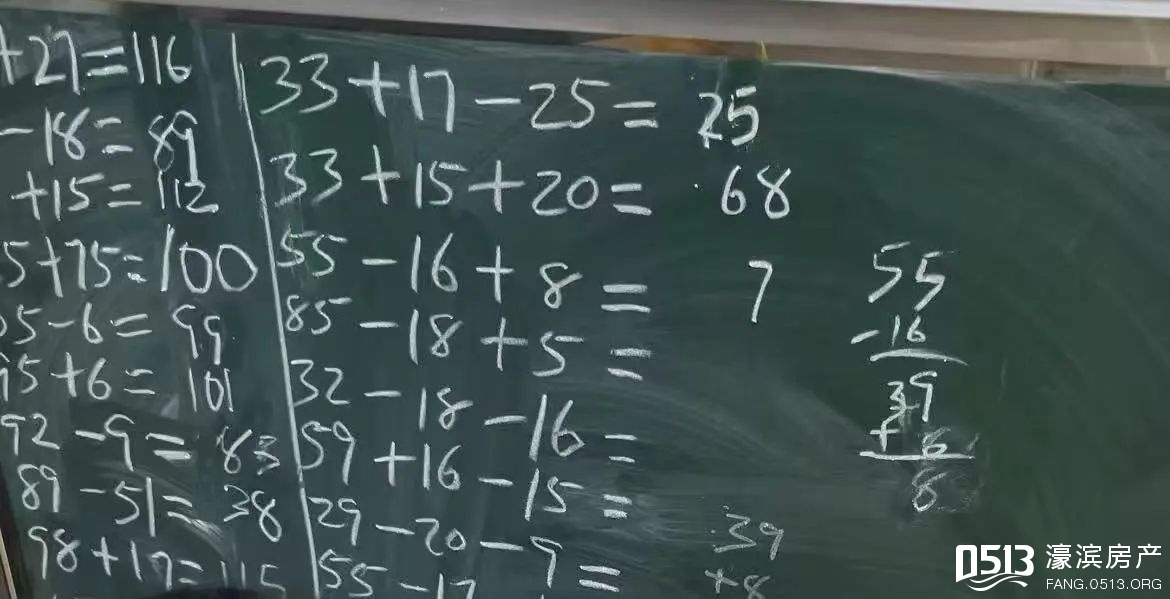 +27=116
-18=89
+15=112
5+75=100
5-6=99
95+6=101
92-9=83
89-51=38
98+17=115
33+17-25= 25
33+15+20= 68
55-16+8= 7
85-18+5=
32-18-16=
59+16-15=
29-20-9=
55-17
55
-16
39
+8
8
39
+8
0513 濠滨房产
FANG.0513.ORG